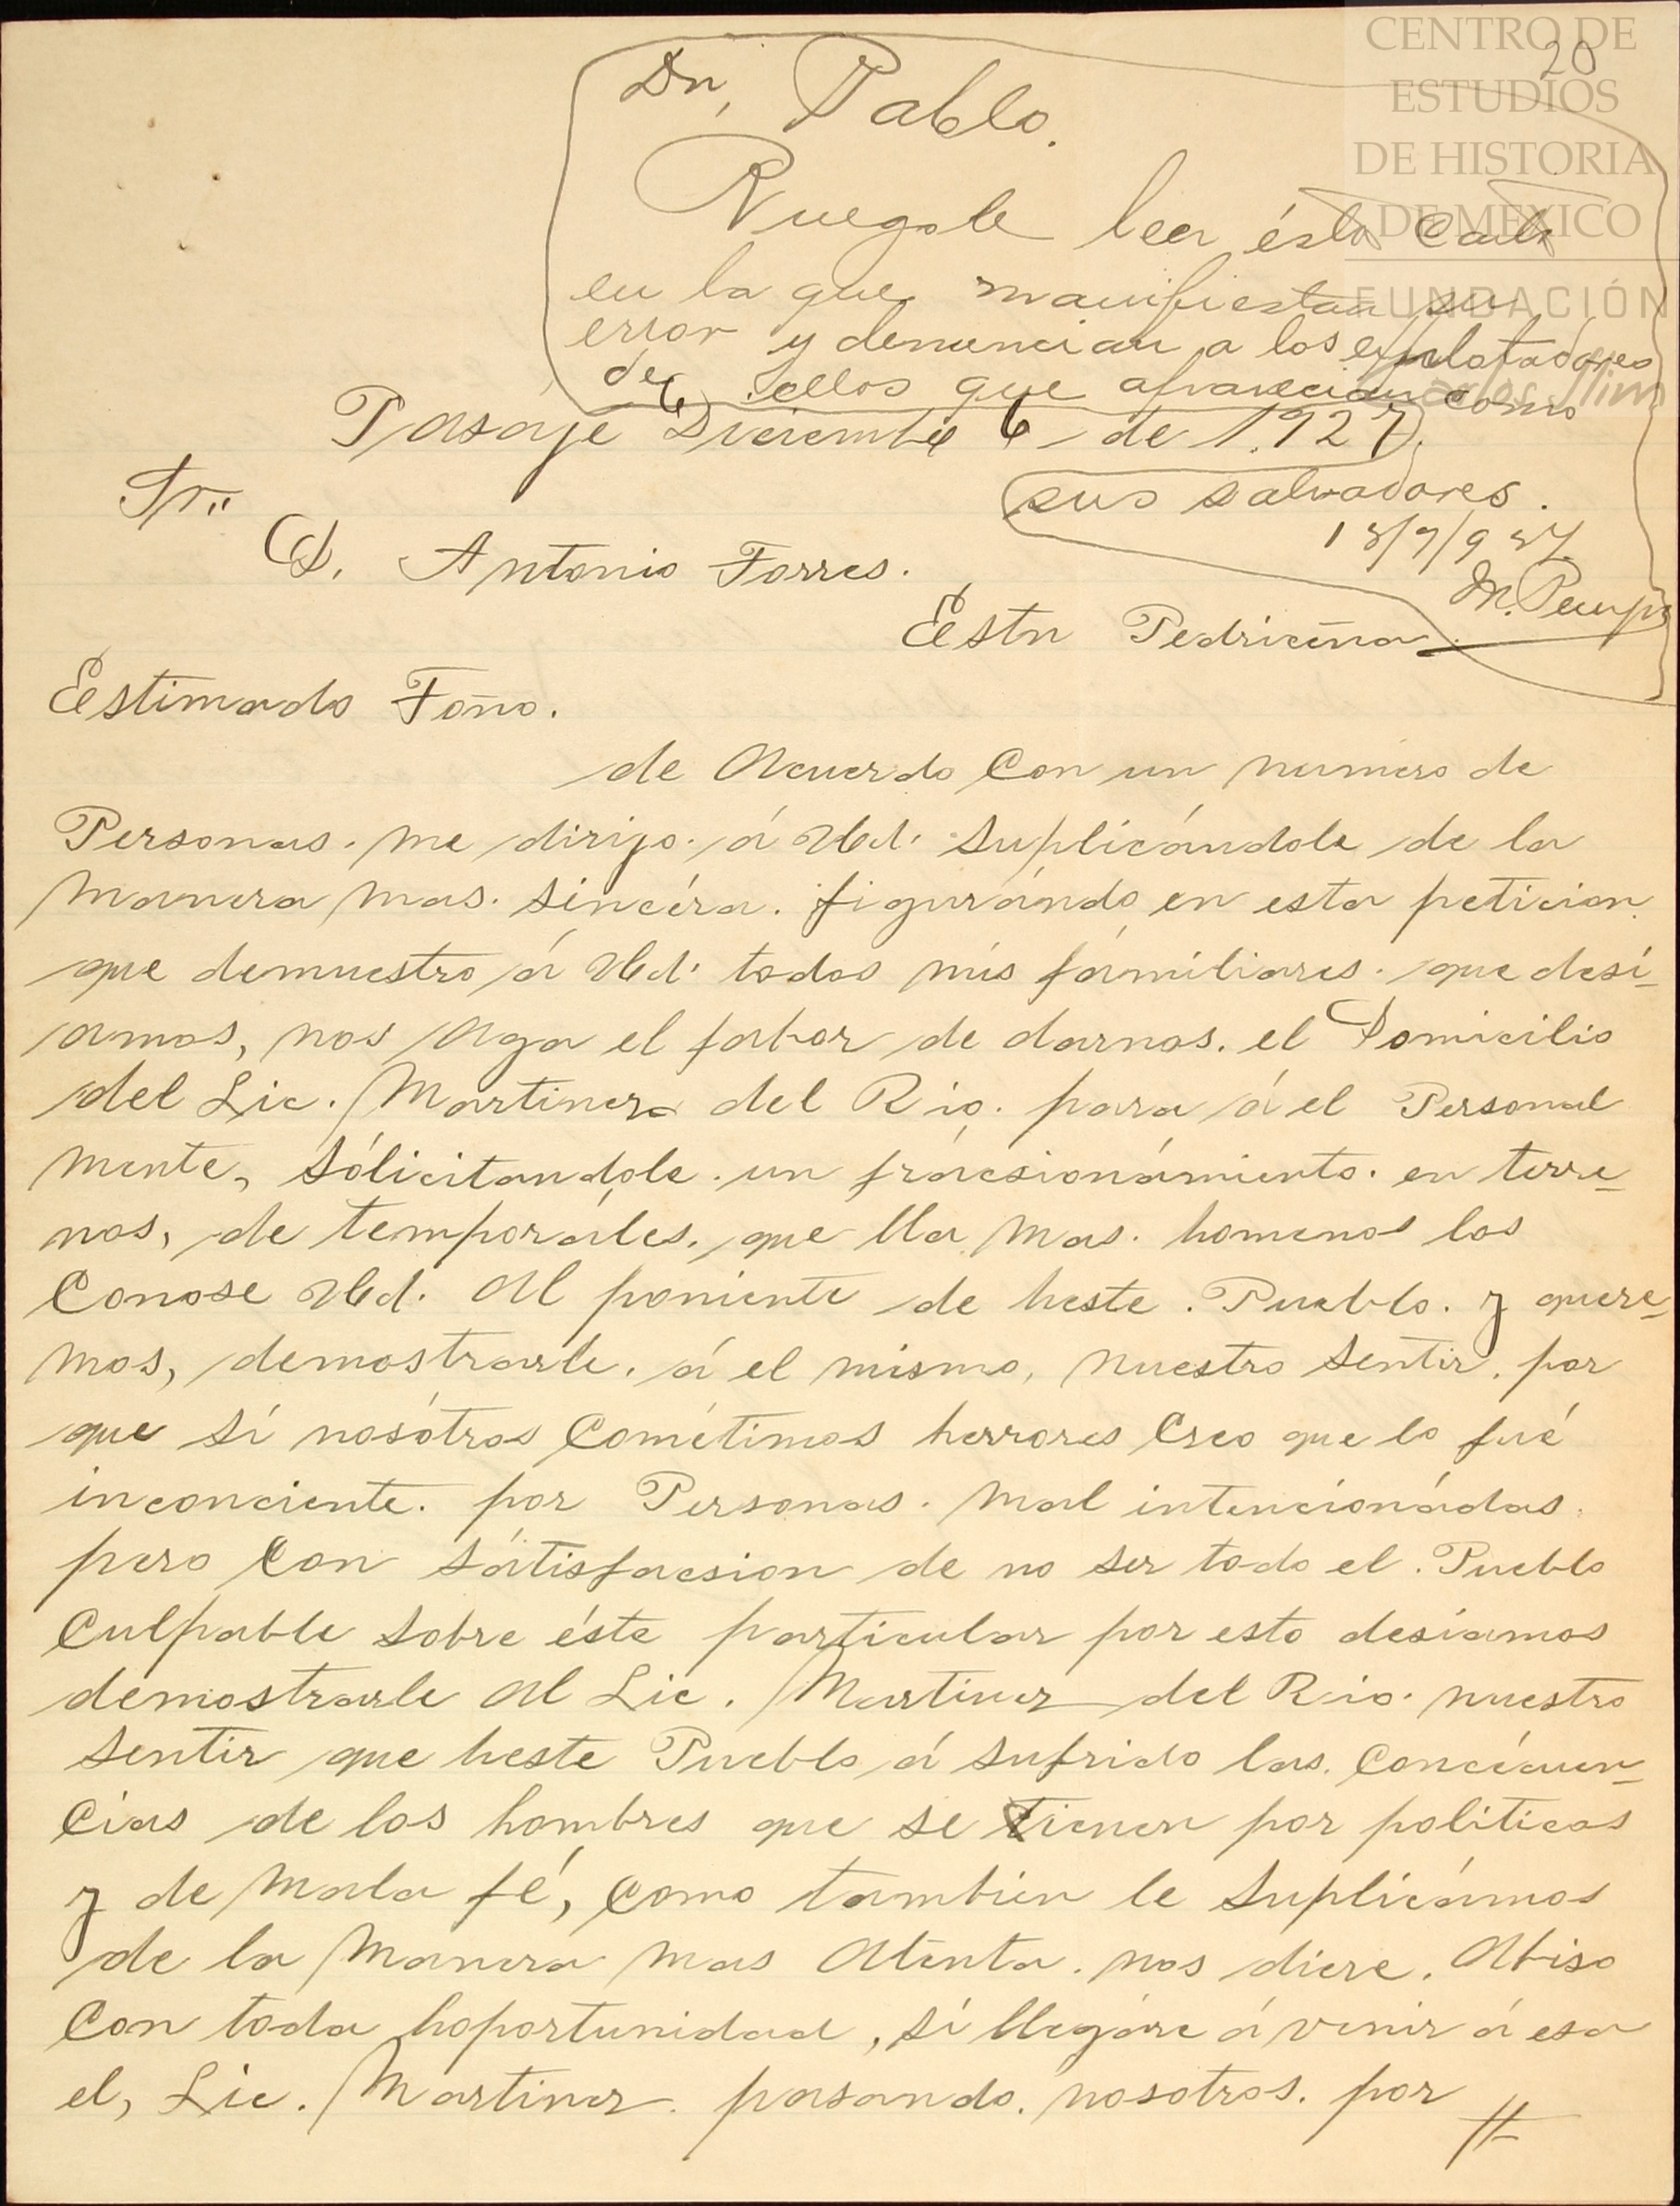 CENTRO DE
ESTUDIOS
DE HISTORIA
DE MEXICO
FUNDACIÓN
Carlos Slim
20
Dn, Pablo.
Ruegole leer ésta Carta
en la que manifiestan su
error y denuncian a los explotadores
de ellos que aparecian como
sus salvadores.
M. Pampa
Pasaje Diciembre 6 de 1.927.
Sr.
D. Antonio Torres.
Estn Pedriceña
Estimado Toño.
de Acuerdo Con un numero de
Personas. me dirijo. á Ud. Suplicándole de la
Manera mas. sincéra. figurándo en esta peticion
que demuestro á Ud. todos mis fámiliares. que desi-
amos, nos Aga el fabor de darnos. el Domicilio
del Lic. Martinez del Rio. para á el Personal
mente, sólicitandole. un frácsionámiento. en terre-
nos, de temporáles, que lla mas. homenos los
Conose Ud. Al poniente de heste. Pueblo. y quere-
mos, demostrarle. á el mismo, nuestro sentir. por
que si nosótros Cométimos herrores Creo que lo fué
inconciente. por Personas. mal intencionádas.
pero Con sátisfacsion de no ser todo el. Pueblo
Culpable sobre éste particular por esto desiamos
demostrarle Al Lic. Martinez del Rio. nuestro
sentir que heste Pueblo á sufrido las. Concécuen-
Cias de los hombres que se tienen por politicos
y de mala fé, como tambien le suplicámos
de la Manera mas Atenta. nos diere. Abiso
Con toda hoportunidad, si llegáre á venir á esa
el, Lic. Martinez. pasando. nosotros. por